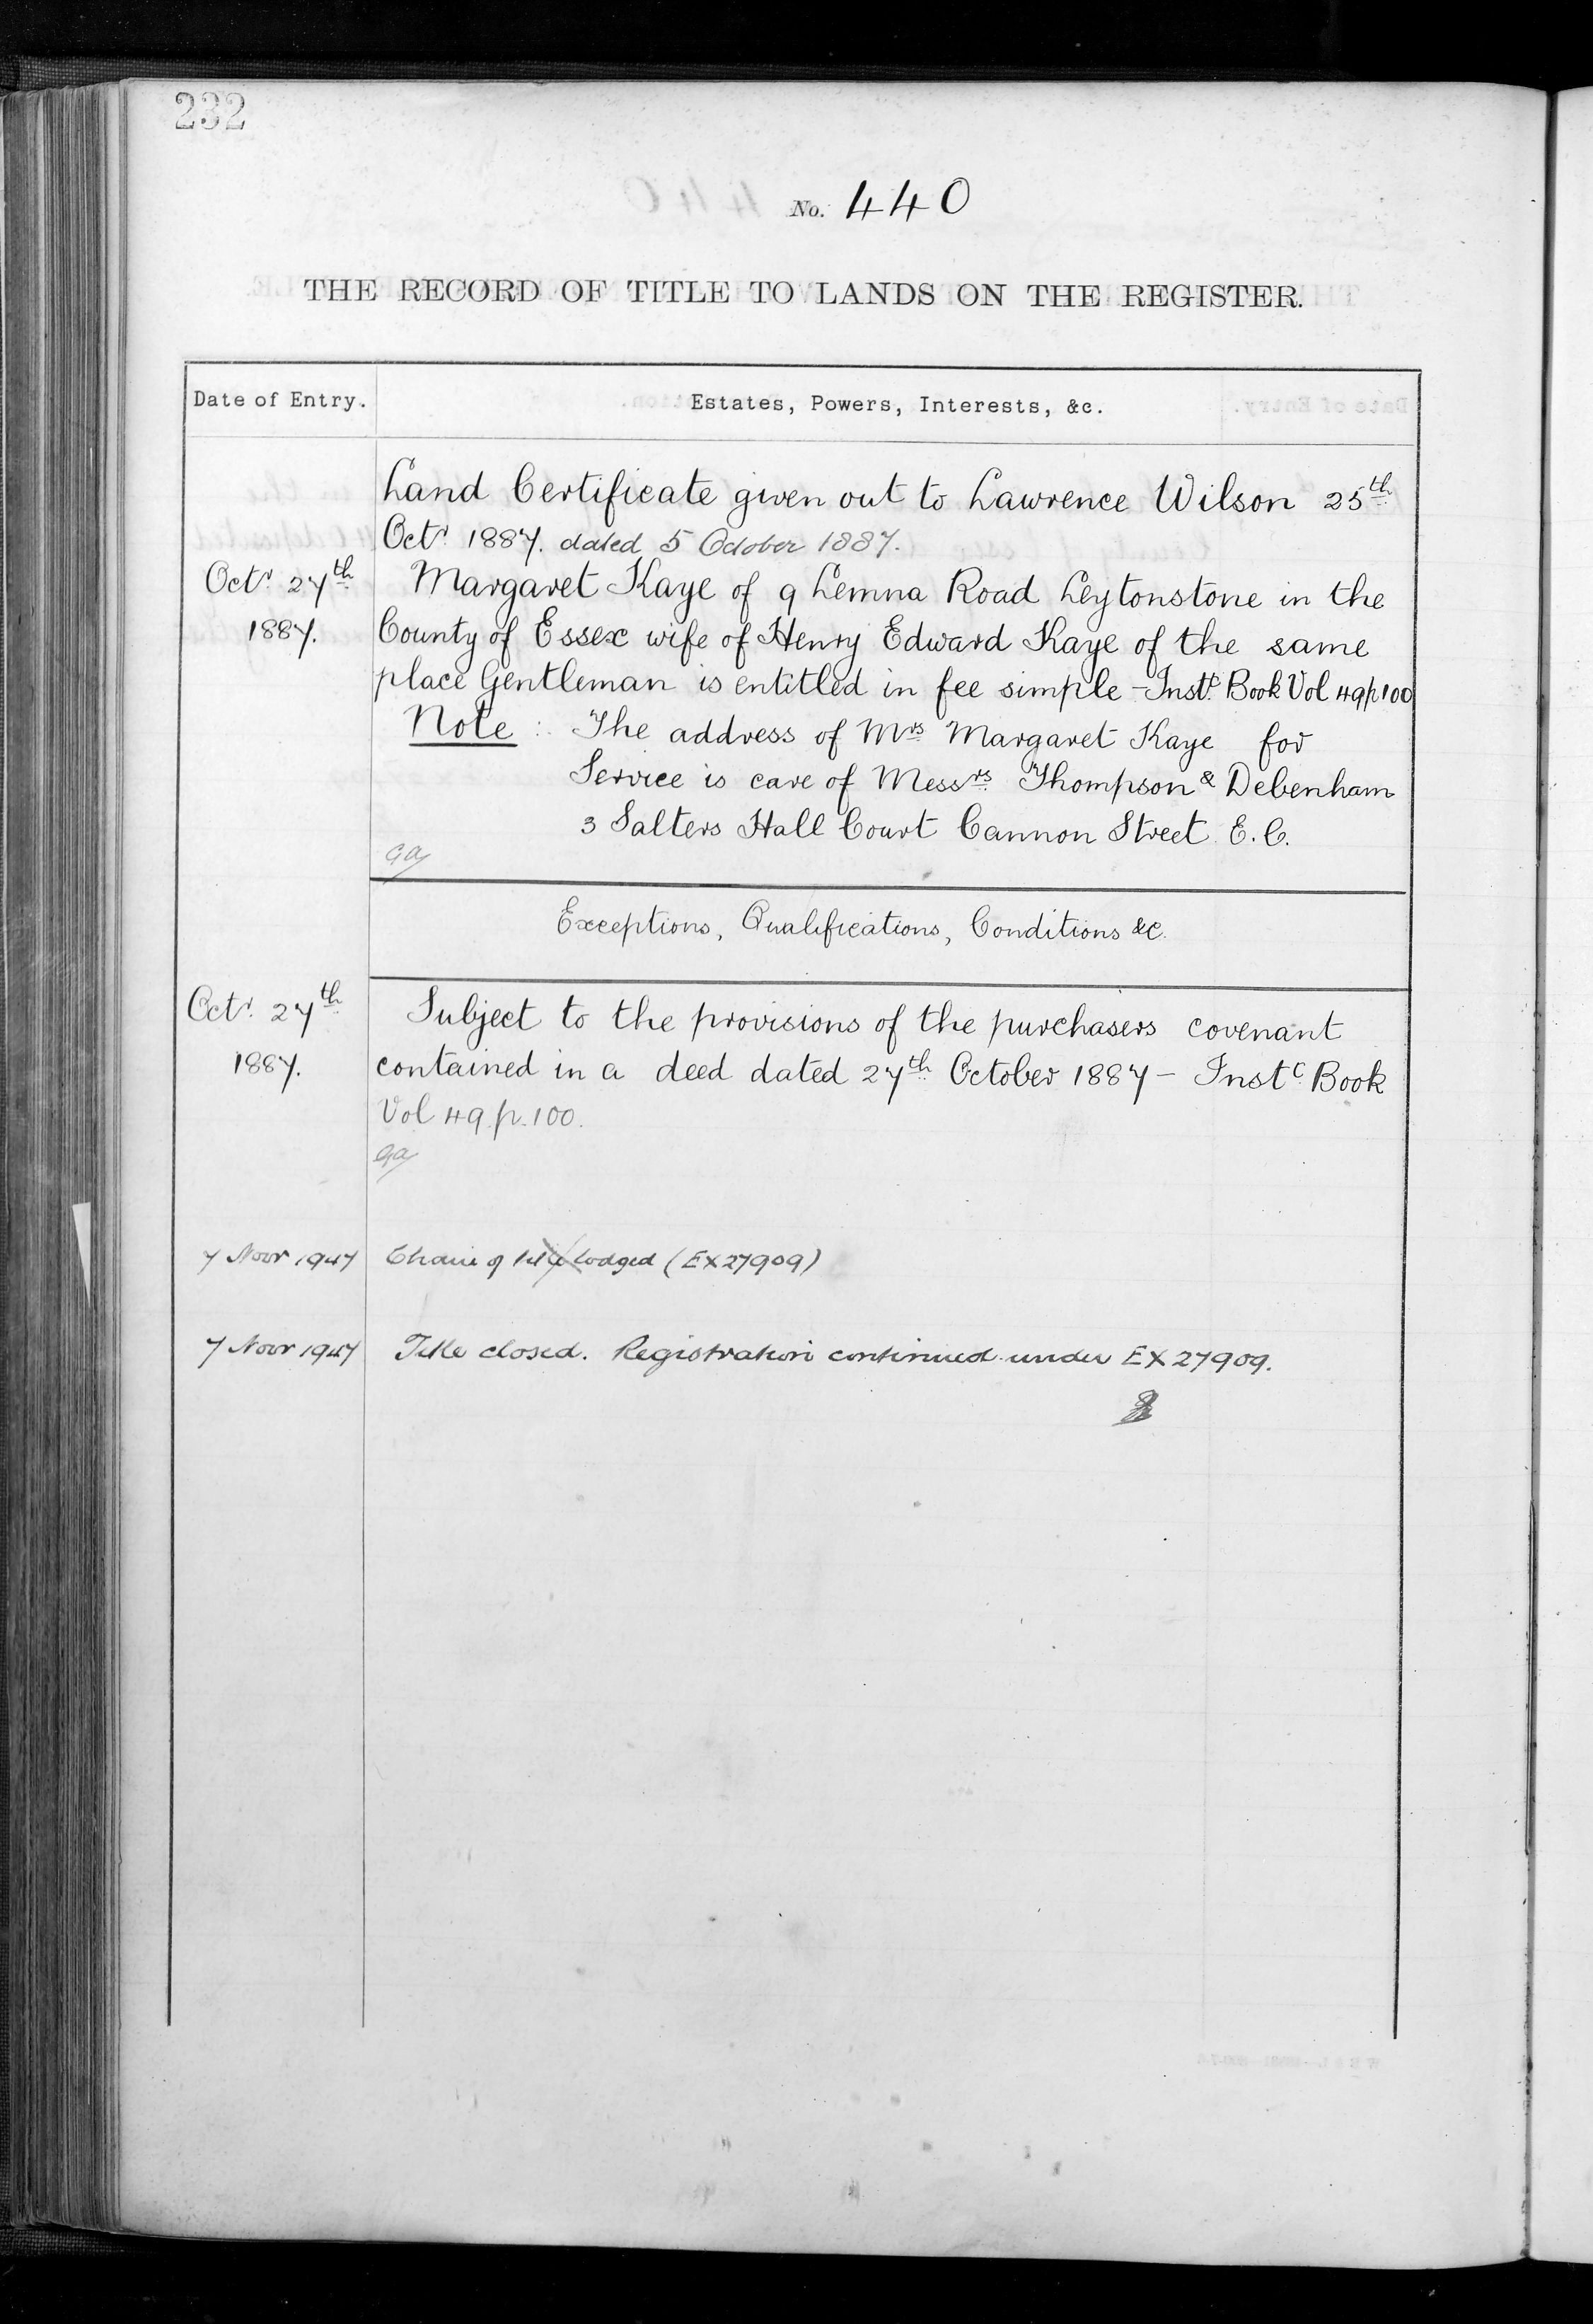 232
No. 440
THE RECORD OF TITLE TO LANDS ON THE REGISTER.
Date of Entry.
Estates, Powers, Interests, &c.
Land Certificate given out to Lawrence Wilson 25th
Octr. 1887. dated 5 October 1887.
Octr. 27th
1887.
Margaret Kaye of 9 Lemna Road Leytonstone in the
County of Essex wife of Henry Edward Kaye of the same
place Gentleman is entitled in fee simple - Instc. Book Vol 49 p 100
Note : The address of Mrs Margaret Kaye for
Service is care of Messrs. Thompson & Debenham
3 Salters Hall Court Cannon Street E.C.
GA
Exceptions, Qualifications, Conditions &c.
Octr. 27th
1887.
Subject to the provisions of the purchasers covenant
contained in a deed dated 27th October 1887 - Instc. Book
Vol 49 p. 100.
GA
7 Novr 1947 Chain of title lodged (EX27909)
7 Novr 1947 Title closed. Registration continued under EX27909.